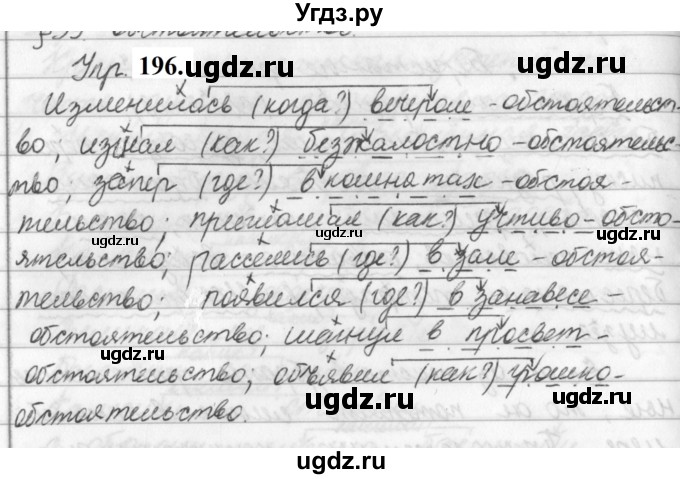 Угдз.ру
Упр. 196.
Изменилась (когда?) вечером - обстоятельст-
во; изгнал (как?) безжалостно - обстоятельс-
тво; запер (где?) в комнатах - обстоя-
тельство; приглашая (как?) учтиво - обсто-
ятельство; расселись (где?) в зале - обстоя-
тельство; появился (где?) в занавесе -
обстоятельство; шагнул в просвет -
обстоятельство; объявил (как?) громко -
обстоятельство.
ugdz.ru
ugdz.ru
ugdz.ru
ugdz.ru
ugdz.ru
ugdz.ru
ugdz.ru
ugdz.ru
ugdz.ru